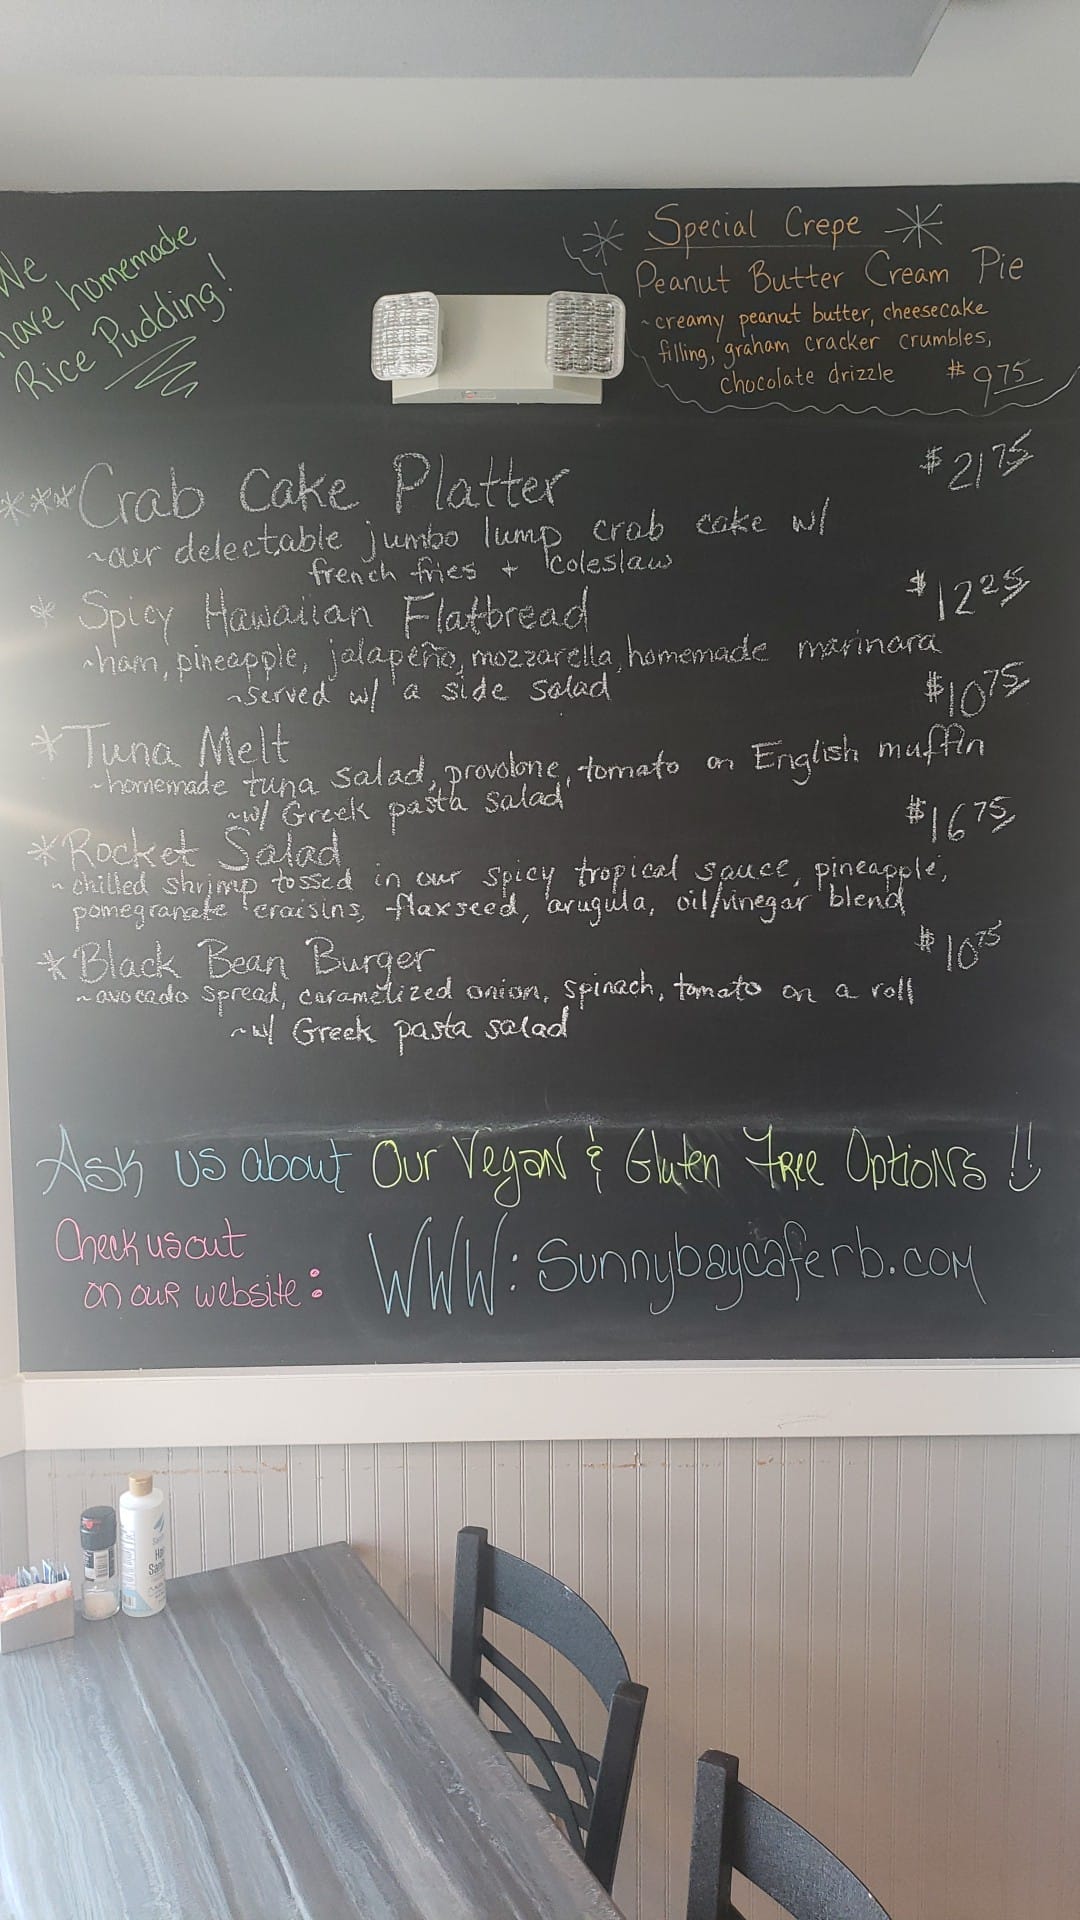 We
have homemade
Rice Pudding!
Special Crepe
Peanut Butter Cream Pie
~creamy peanut butter, cheesecake
filling, graham cracker crumbles,
chocolate drizzle $9.75
***Crab Cake Platter $21.75
~our delectable jumbo lump crab cake w/
french fries + coleslaw
* Spicy Hawaiian Flatbread $12.25
~ham, pineapple, jalapeño, mozzarella, homemade marinara
~served w/ a side salad
*Tuna Melt $10.75
~homemade tuna salad, provolone, tomato on English muffin
~w/ Greek pasta salad
*Rocket Salad $16.75
~chilled shrimp tossed in our spicy tropical sauce, pineapple,
pomegranate craisins, flaxseed, arugula, oil/vinegar blend
*Black Bean Burger $10.75
~avocado spread, caramelized onion, spinach, tomato on a roll
~w/ Greek pasta salad
Ask us about Our Vegan & Gluten Free Options!!
Check us out
on our website:
WWW: Sunnybaycaferb.com